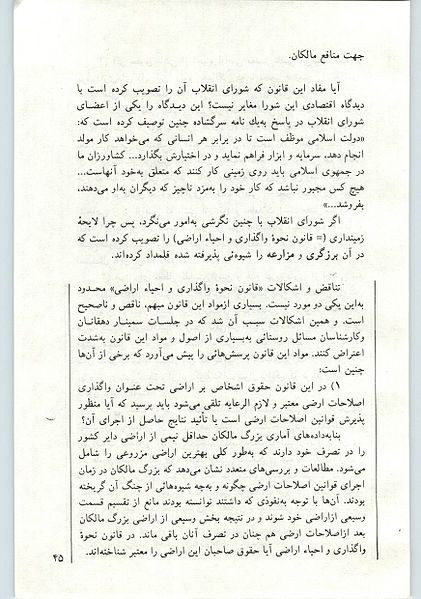 جهت منافع مالکان.
آیا مفاد این قانون که شورای انقلاب آن را تصویب کرده است با
دیدگاه اقتصادی این شورا مغایر نیست؟ این دیدگاه را یکی از اعضای
شورای انقلاب در پاسخ به‌یك نامه سرگشاده چنین توصیف کرده است که:
«دولت اسلامی موظف است تا در برابر هر انسانی که می‌خواهد کار مولد
انجام دهد، سرمایه و ابزار فراهم نماید و در اختیارش بگذارد... کشاورزان ما
در جمهوی اسلامی باید روی زمینی کار کنند که متعلق به‌خود آنهاست...
هیچ کس مجبور نباشد که کار خود را به‌مزد ناچیز که دیگران به‌او می‌دهند،
بفروشد...»
اگر شورای انقلاب با چنین نگرشی به‌امور می‌نگرد، پس چرا لایحهٔ
زمینداری (= قانون نحوهٔ واگذاری و احیاء اراضی) را تصویب کرده است که
در آن برزگری و مزارعه را شیوه‌ئی پذیرفته شده قلمداد کرده‌اند.
تناقض و اشکالات «قانون نحوهٔ واگذاری و احیاء اراضی» محدود
به‌این یکی دو مورد نیست. بسیاری ازمواد این قانون مبهم، ناقص و ناصحیح
است. و همین اشکالات سبب آن شد که در جلسات سمینار دهقانان
وکارشناسان مسائل روستائی به‌بسیاری از اصول و مواد این قانون به‌شدت
اعتراض کنند. مواد این قانون پرسش‌هائی را پیش می‌آورد که برخی از آن‌ها
چنین است:
۱) در این قانون حقوق اشخاص بر اراضی تحت عنوان واگذاری
اصلاحات ارضی معتبر و لازم الرعایه تلقی می‌شود باید پرسید که آیا منظور
پذیرش قوانین اصلاحات ارضی است یا تأئید نتایج حاصل از اجرای آن؟
بنابه‌داده‌های آماری بزرگ مالکان حداقل نیمی از اراضی دایر کشور
را در تصرف خود دارند که به‌طور کلی بهترین اراضی مزروعی را شامل
می‌شود. مطالعات و بررسی‌های متعدد نشان می‌دهد که بزرگ مالکان در زمان
اجرای قوانین اصلاحات ارضی چگونه و به‌چه شیوه‌هائی از جنگ آن گریخته
بودند. آن‌ها با توجه به‌نفوذی که داشتند توانسته بودند مانع از تقسیم قسمت
وسیعی ازاراضی خود شوند و در نتیجه بخش وسیعی از اراضی بزرگ مالکان
بعد ازاصلاحات ارضی هم چنان در تصرف آنان باقی ماند. در قانون نحوهٔ
واگذاری و احیاء اراضی آیا حقوق صاحبان این اراضی را معتبر شناخته‌اند.
۴۵